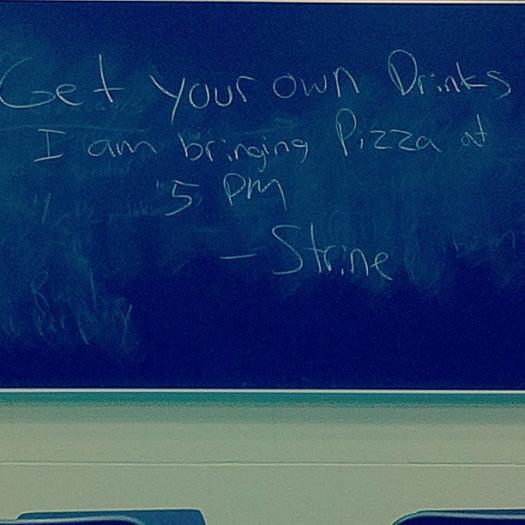 Get your own Drinks
I am bringing Pizza at
5 PM
- Strine